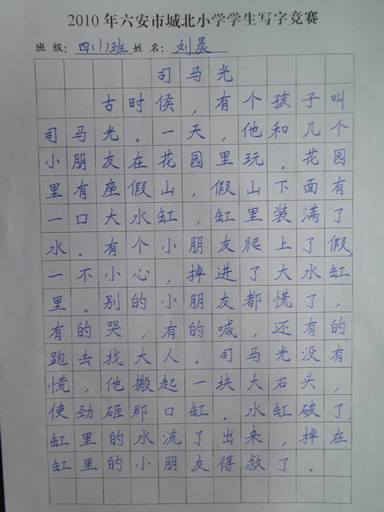 2010年六安市城北小学学生写字竞赛
班级:四(1)班 姓名:刘晨
司马光
古时候,有个孩子叫
司马光。一天,他和几个
小朋友在花园里玩。花园
里有座假山,假山下面有
一口大水缸,缸里装满了
水。有个小朋友爬上了假
一不小心,掉进了大水缸
里。别的小朋友都慌了,
有的哭,有的喊,还有的
跑去找大人。司马光没有
慌,他搬起一块大石头,
使劲砸那口缸。水缸破了,
缸里的水流了出来,掉在
缸里的小朋友得救了。